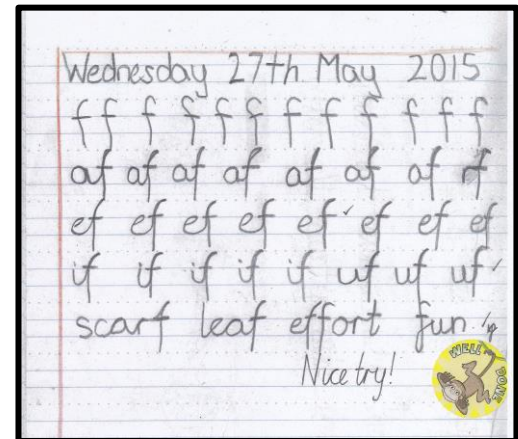 Wednesday 27th May 2015
f f f f f f f f f f f f
af af af af af af af rf
ef ef ef ef ef ef ef ef
if if if if if uf uf uf
scarf leaf effort fun
Nice try!
WELL DONE